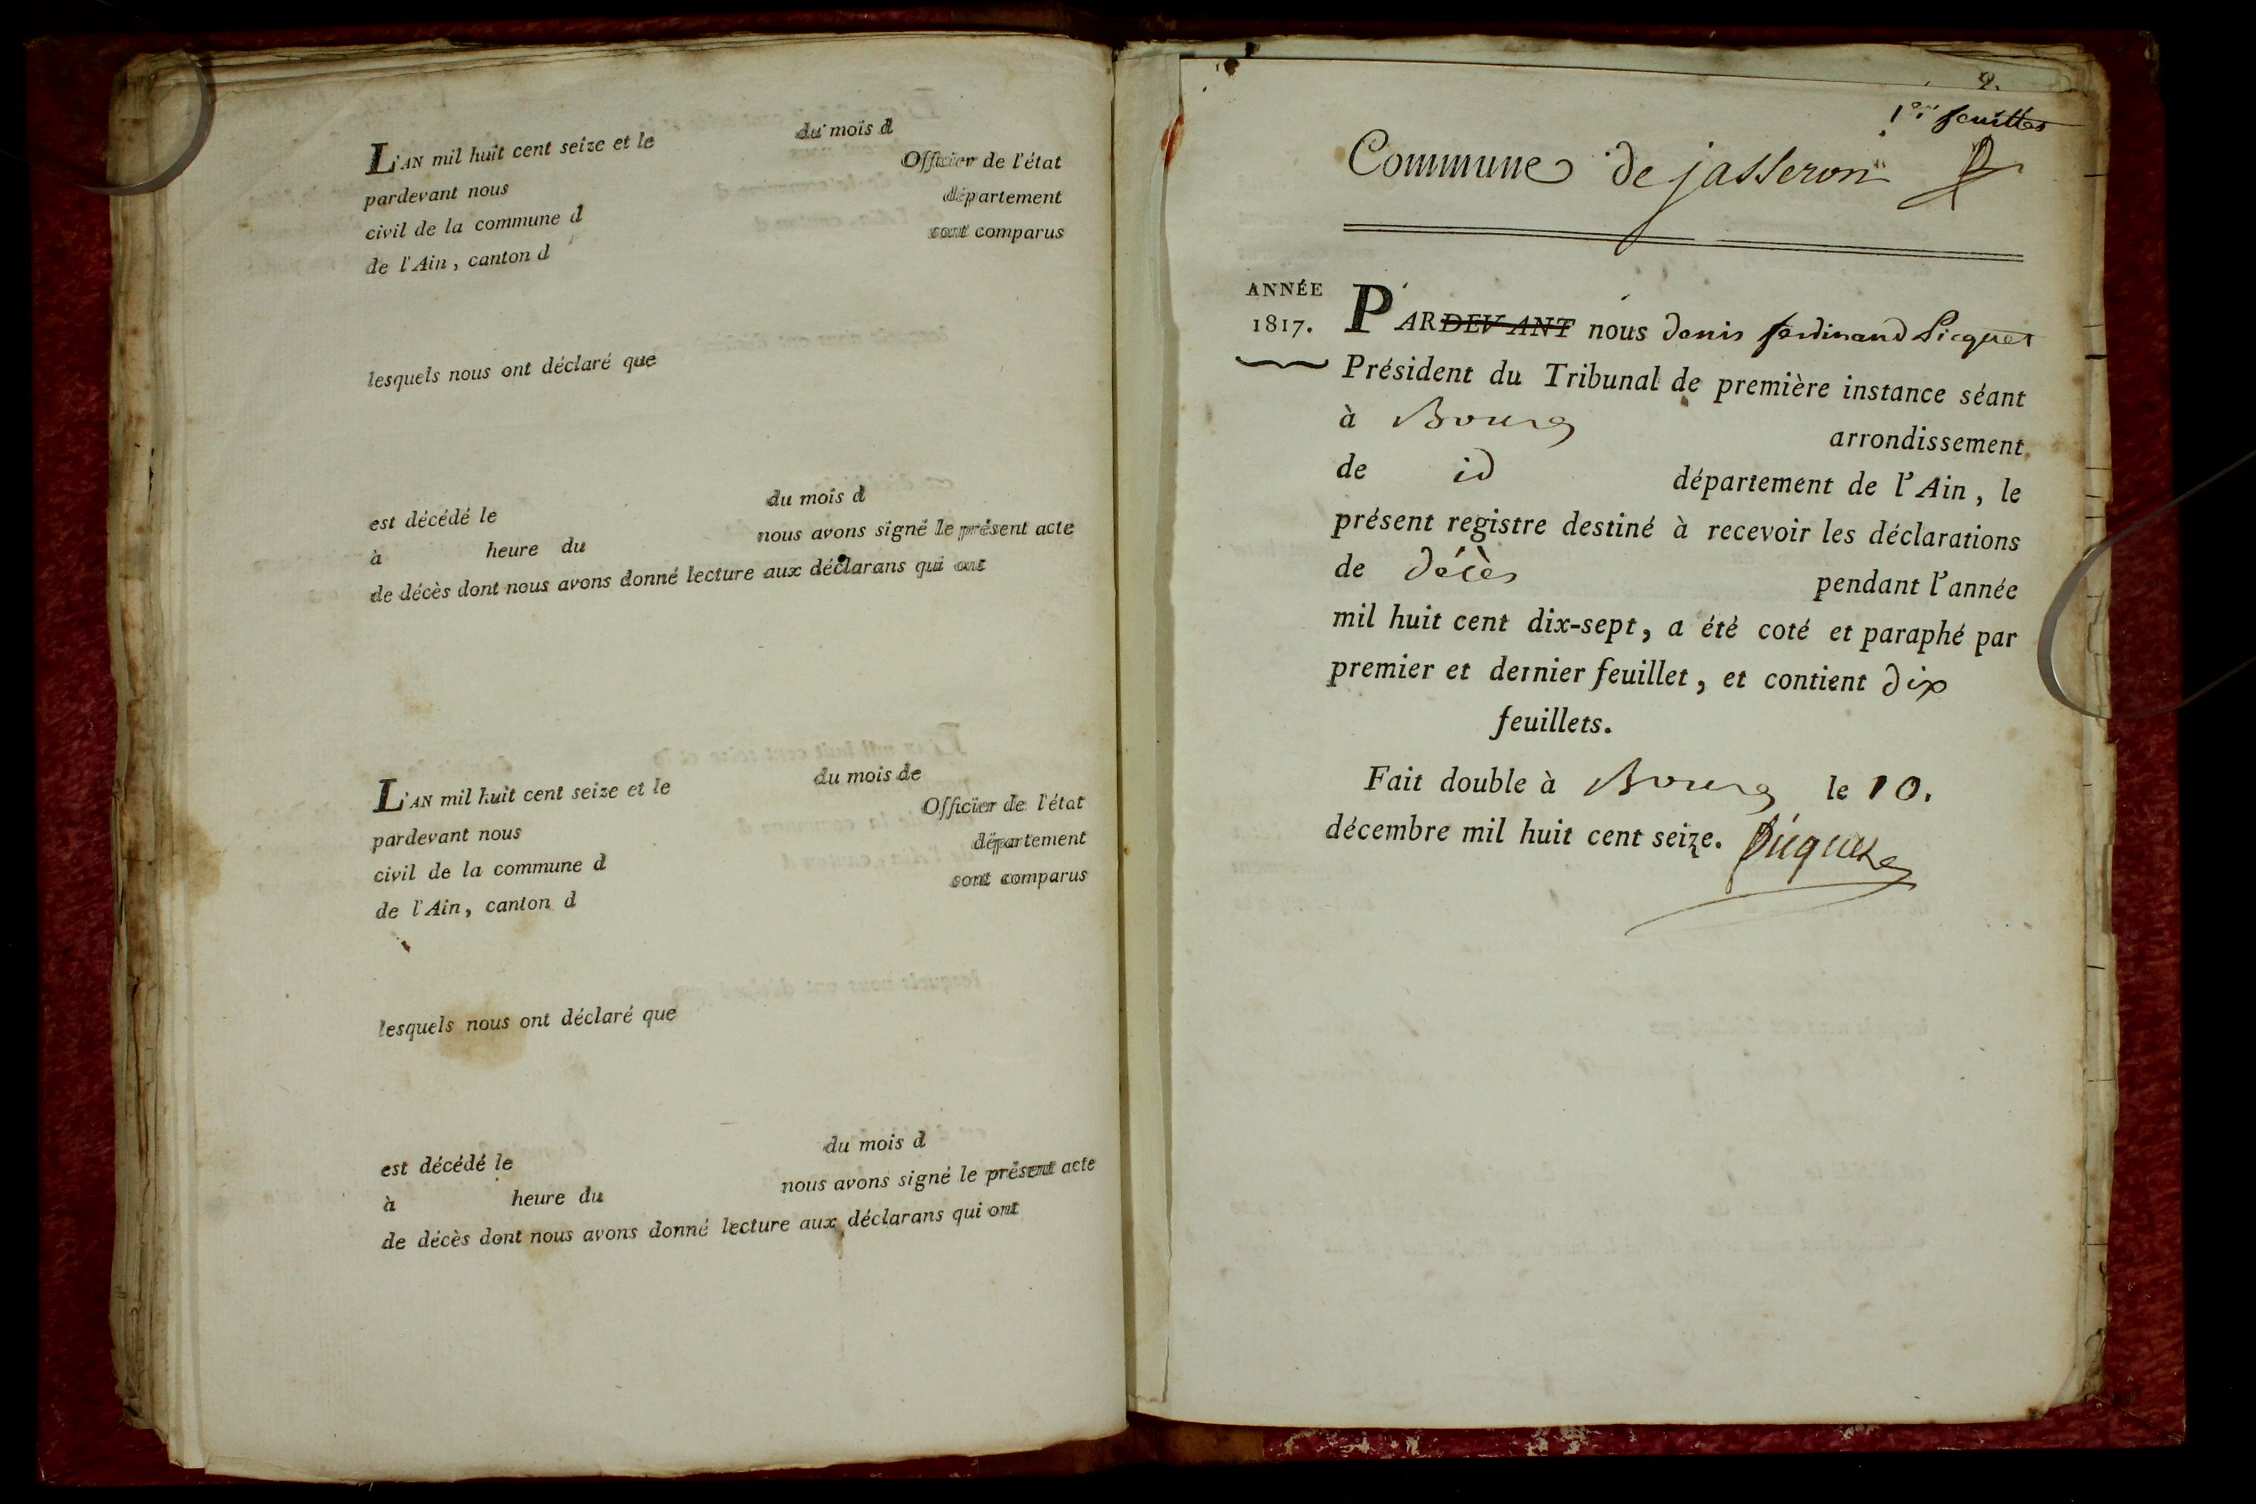 L'AN mil huit cent seize et le du mois d
pardevant nous Officier de l'état
civil de la commune d département
de l'Ain, canton d sont comparus
lesquels nous ont déclaré que
est décédé le du mois d
à heure du nous avons signé le présent acte
de décès dont nous avons donné lecture aux déclarans qui ont
L'AN mil huit cent seize et le du mois de
pardevant nous Officier de l'état
civil de la commune d département
de l'Ain, canton d sont comparus
lesquels nous ont déclaré que
est décédé le du mois d
à heure du nous avons signé le présent acte
de décès dont nous avons donné lecture aux déclarans qui ont
feuillet
Commune de jasseron
ANNÉE
1817.
PARDEVANT nous denis ferdinand Picquet
Président du Tribunal de première instance séant
à Bourg arrondissement
de id département de l'Ain, le
présent registre destiné à recevoir les déclarations
de décès pendant l'année
mil huit cent dix-sept, a été coté et paraphé par
premier et dernier feuillet, et contient dix
feuillets.
Fait double à Bourg le 10.
décembre mil huit cent seize. Picquet